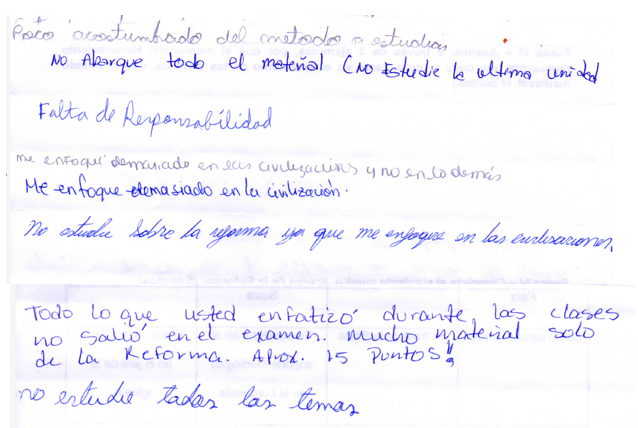 Poco acostumbrado del metodo a estudiar
No Abarque todo el material (No Estudie la ultima unidad
Falta de Responsabilidad
me enfoque demasiado en las civilizacions y no en lo demás
Me enfoque demasiado en la civilización.
No estudie sobre la reforma ya que me enfoque en las civilizaciones.
Todo lo que usted enfatizó durante las clases
no salió en el examen. Mucho material solo
de la Reforma. Aprox. 15 Puntos!!
no estudie todas los temas